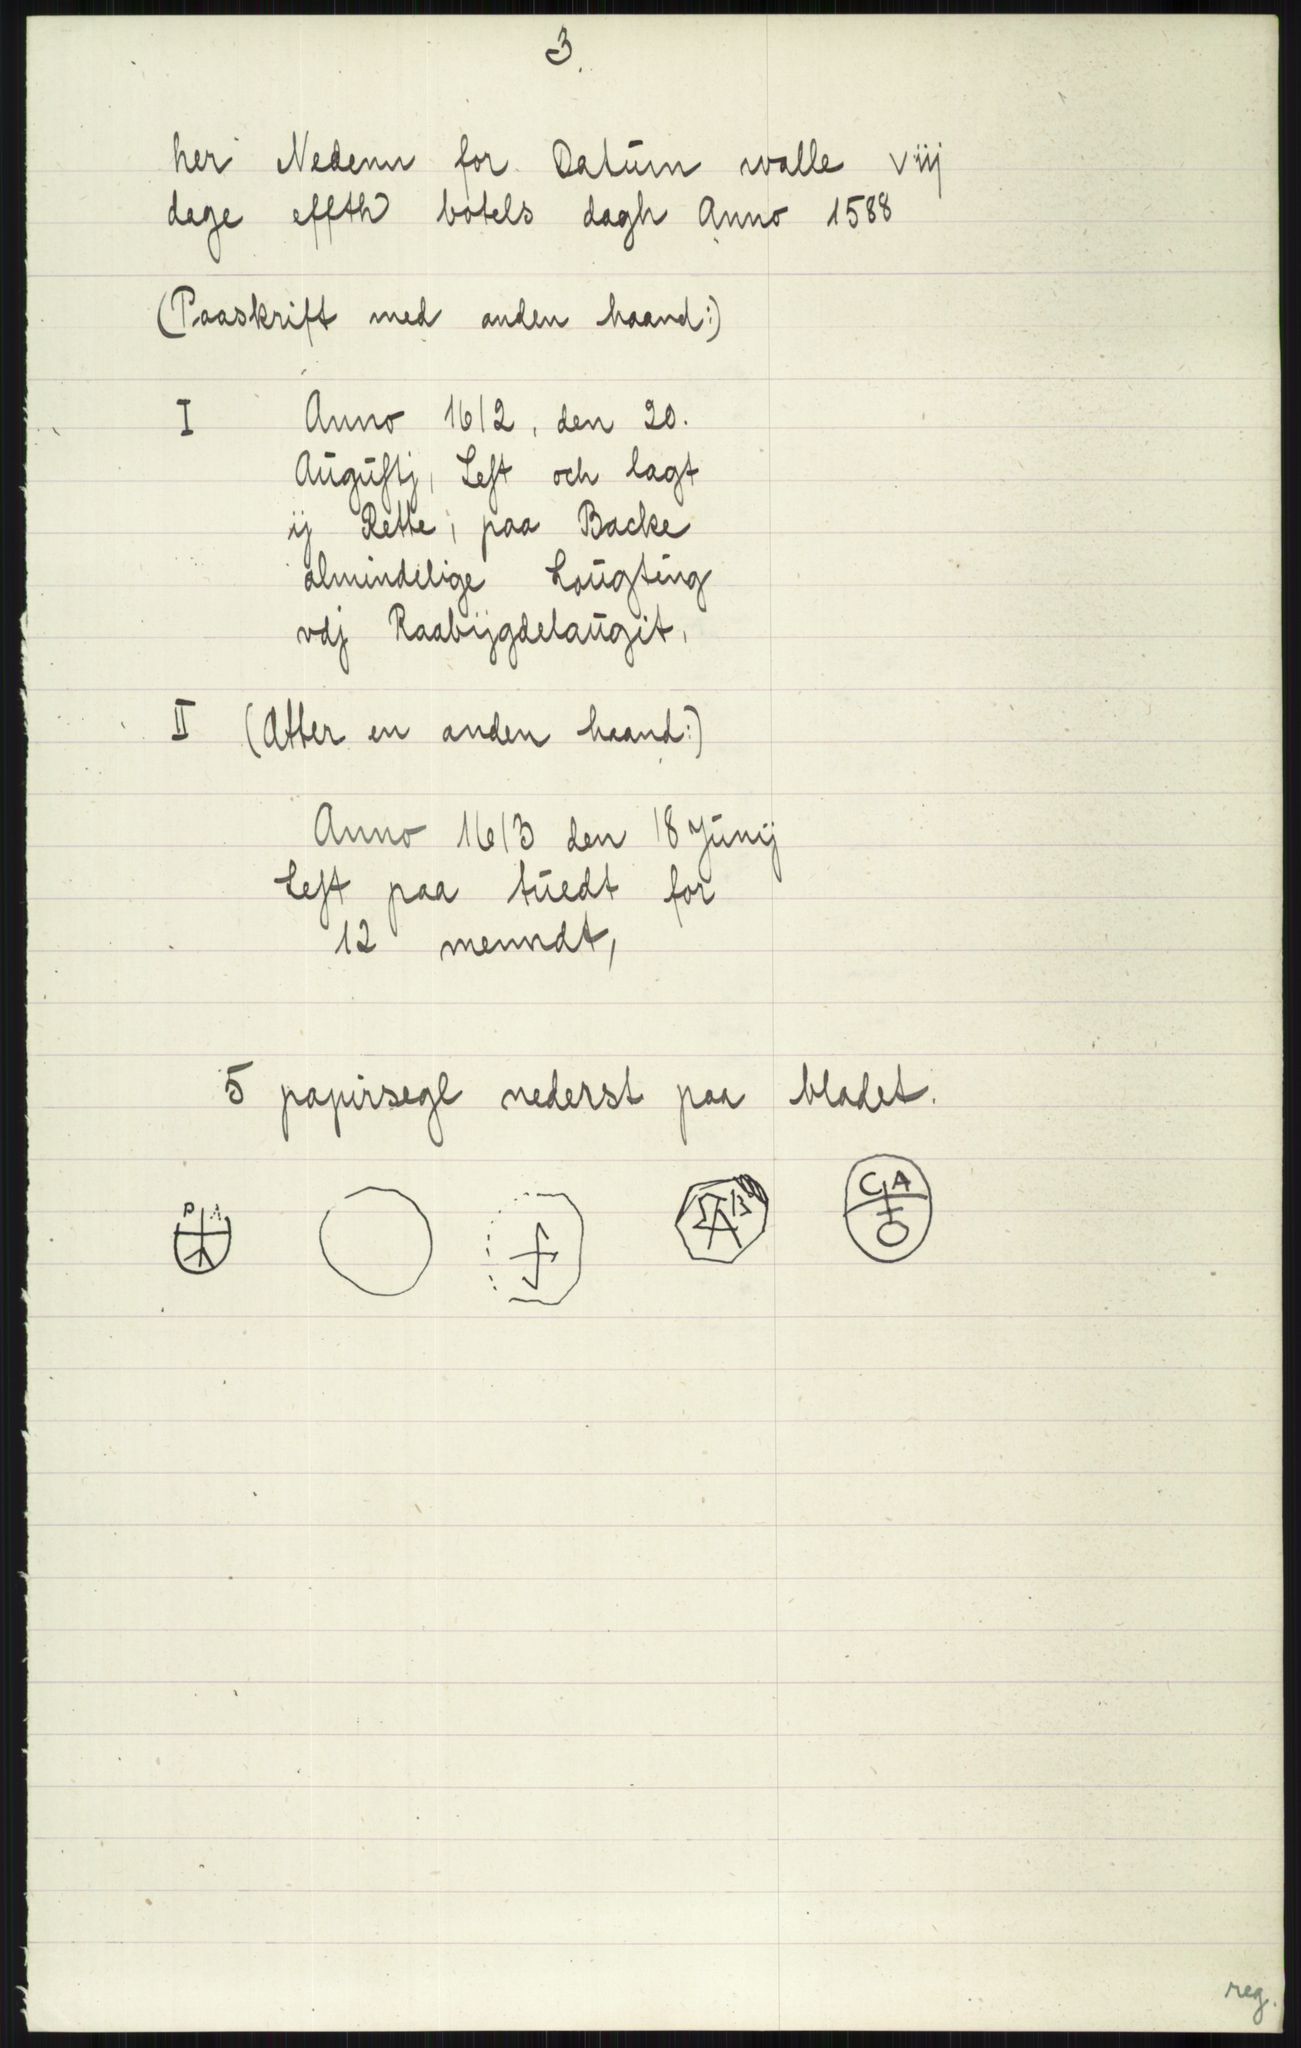 3.
her Nedenn for Datūm walle viij
dage effth botels dagh Anno 1588
(Paaskrift med anden haand:)
I Anno 1612, den 20.
Aūgūstj, Lest och lagt
ij Rette, paa Backe
almindelige Laūgting
vdj Raabijgdelaūgit,
II (Atter en anden haand:)
Anno 1613 den 18 Jūnij
Lest paa tūedt for
12 menndt,
5 papirsegl nederst paa bladet.
P A
C A
reg.